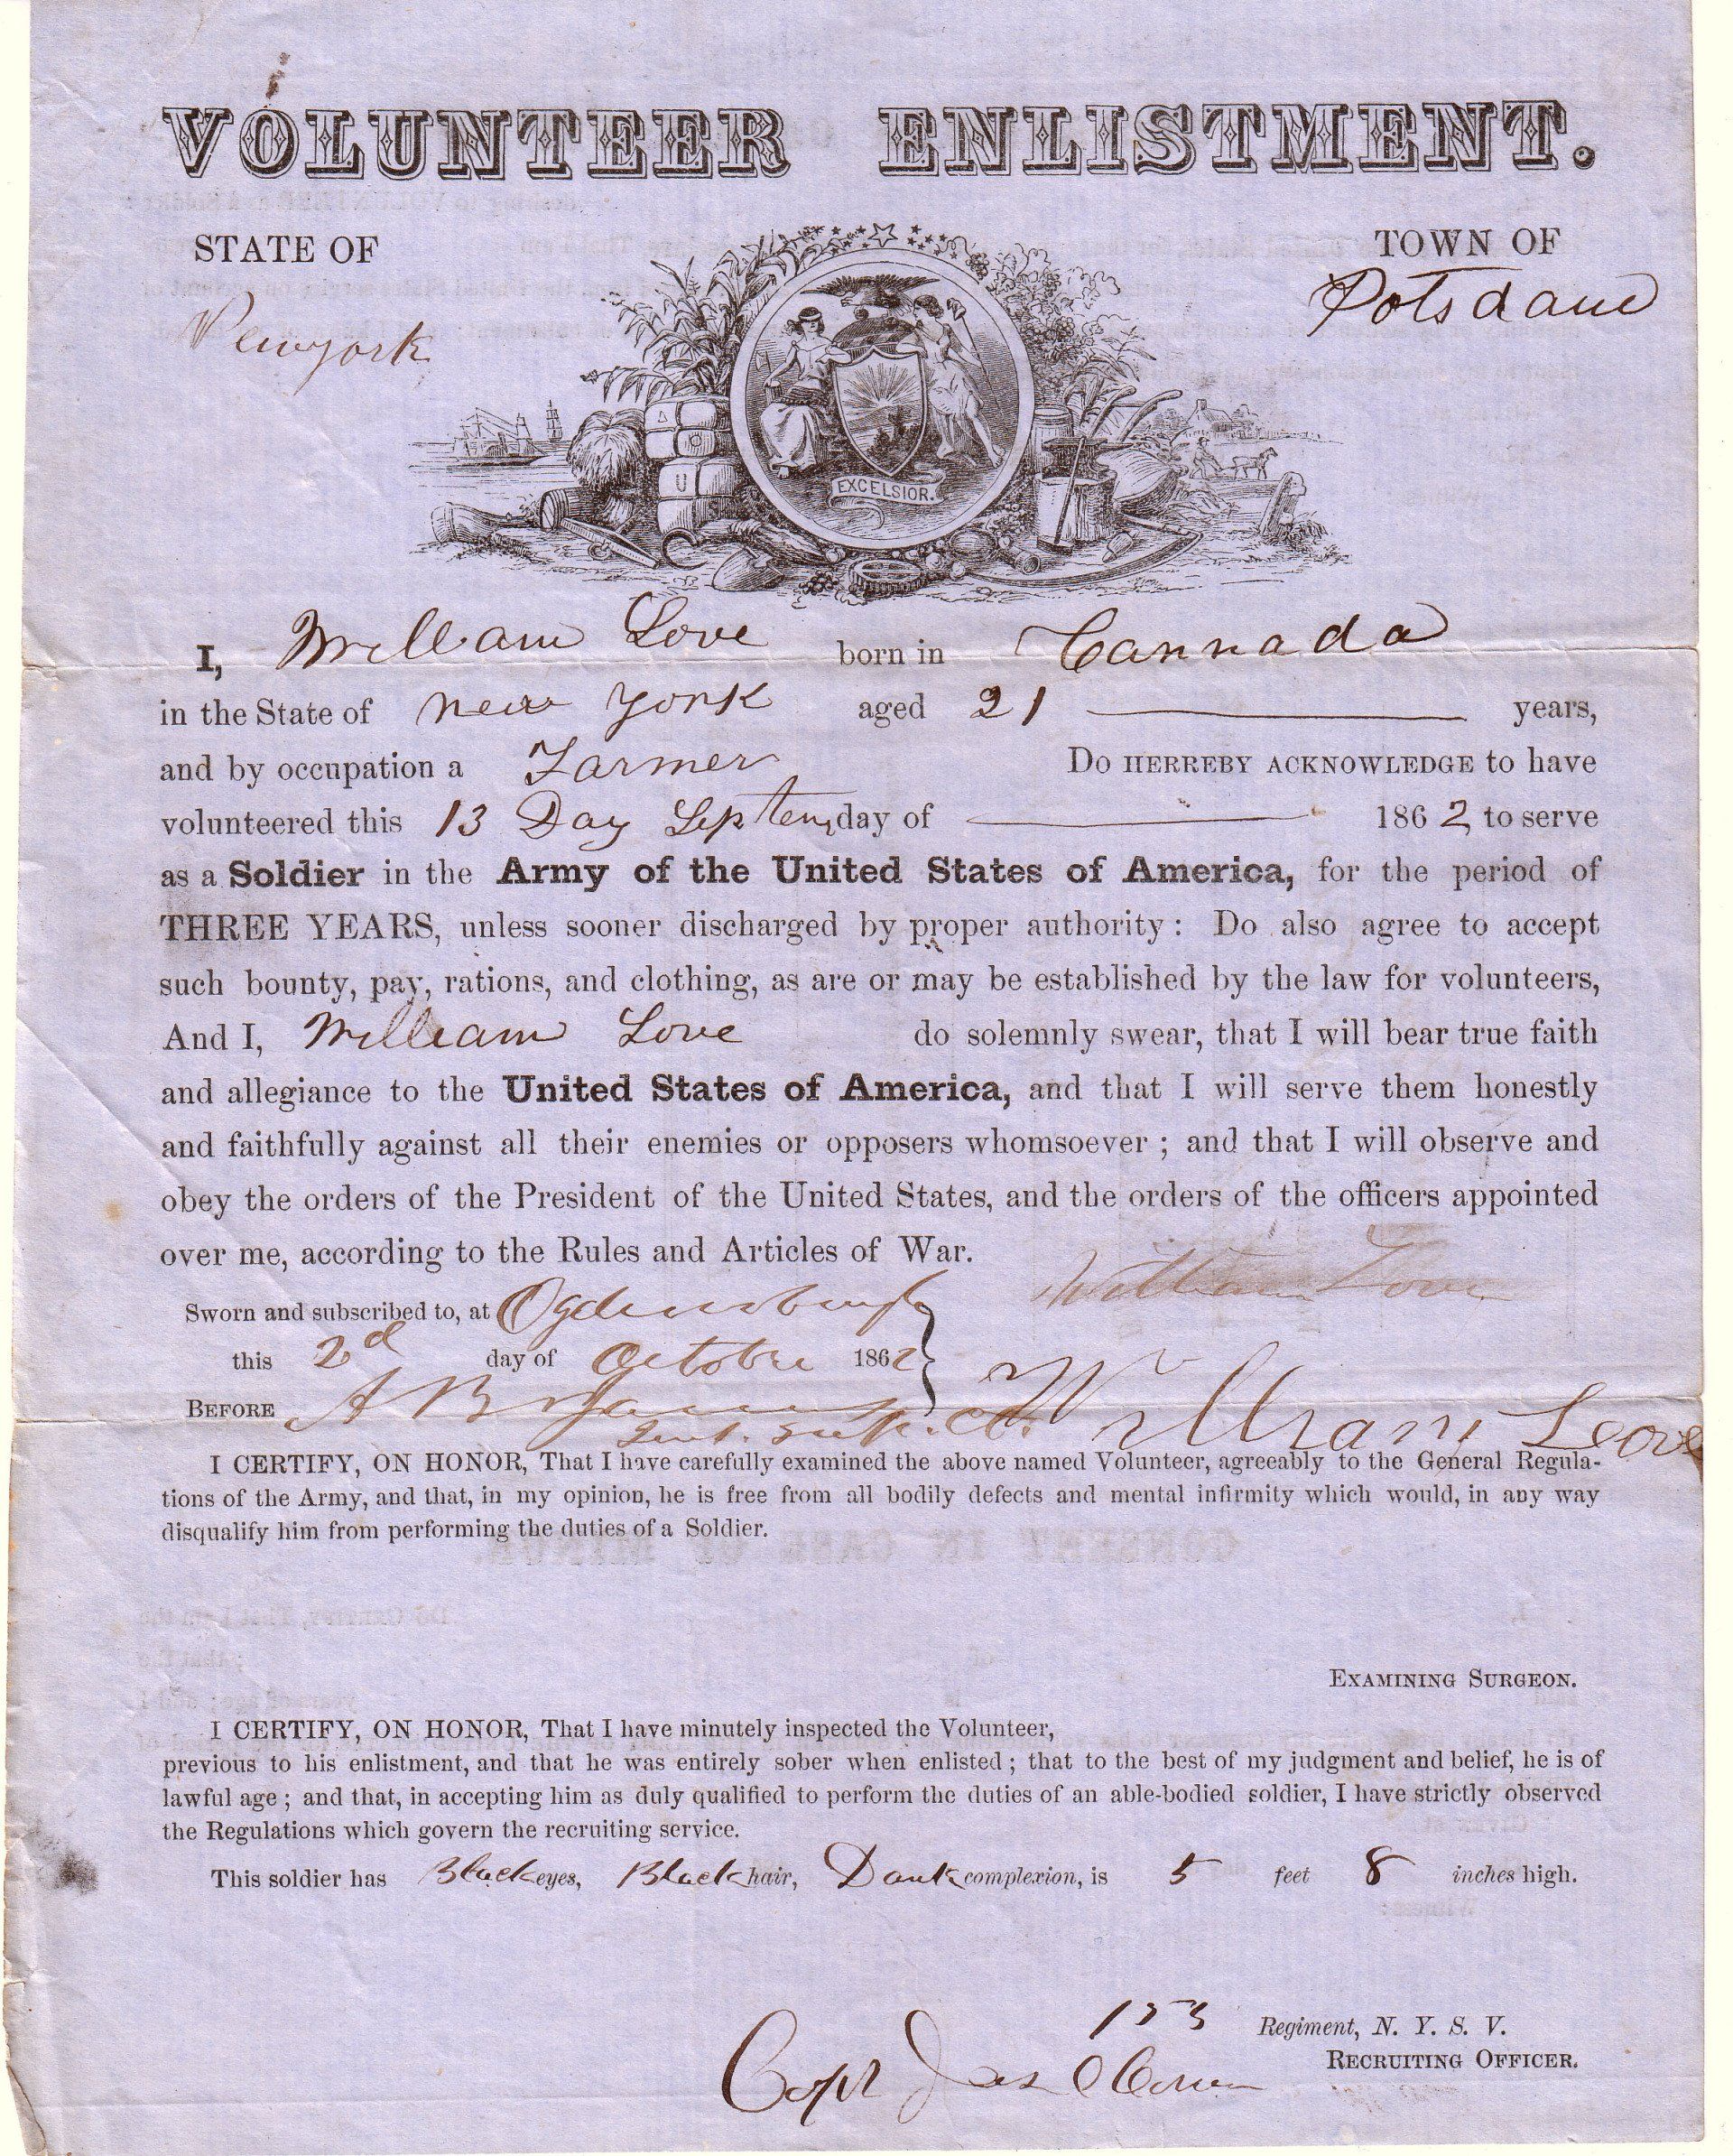 VOLUNTEER ENLISTMENT.
STATE OF
TOWN OF
Newyork
Potsdam
EXCELSIOR.
I, William Love born in Cannada
in the State of New York aged 21 years,
and by occupation a Farmer Do HERREBY ACKNOWLEDGE to have
volunteered this 13 Day Septem day of 1862 to serve
as a Soldier in the Army of the United States of America, for the period of
THREE YEARS, unless sooner discharged by proper authority: Do also agree to accept
such bounty, pay, rations, and clothing, as are or may be established by the law for volunteers,
And I, William Love do solemnly swear, that I will bear true faith
and allegiance to the United States of America, and that I will serve them honestly
and faithfully against all their enemies or opposers whomsoever; and that I will observe and
obey the orders of the President of the United States, and the orders of the officers appointed
over me, according to the Rules and Articles of War.
William Love
Sworn and subscribed to, at Ogdensburgh
this 2d day of October 1862
BEFORE A B
William Leove
I CERTIFY, ON HONOR, That I have carefully examined the above named Volunteer, agreeably to the General Regula-
tions of the Army, and that, in my opinion, he is free from all bodily defects and mental infirmity which would, in any way
disqualify him from performing the duties of a Soldier.
EXAMINING SURGEON.
I CERTIFY, ON HONOR, That I have minutely inspected the Volunteer,
previous to his enlistment, and that he was entirely sober when enlisted; that to the best of my judgment and belief, he is of
lawful age; and that, in accepting him as duly qualified to perform the duties of an able-bodied soldier, I have strictly observed
the Regulations which govern the recruiting service.
This soldier has Black eyes, Black hair, Dark complexion, is 5 feet 8 inches high.
Regiment, N. Y. S. V.
Capt Jas RECRUITING OFFICER.